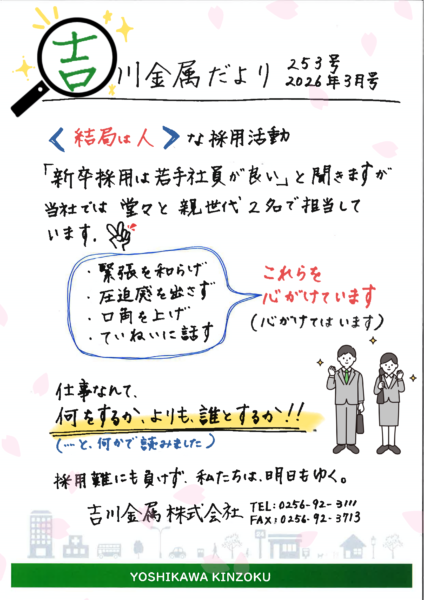 吉川金属だより 253号
2026年3月号
《結局は人》な採用活動
「新卒採用は若手社員が良い」と聞きますが
当社では 堂々と 親世代 2名で担当して
います。
・緊張を和らげ
・圧迫感を出さず
・口角を上げ
・ていねいに話す
これらを
心がけています
(心がけてはいます)
仕事なんて、
何をするか、よりも、誰とするか!!
(…と、何かで読みました)
採用難にも負けず、私たちは、明日もゆく。
吉川金属株式会社 TEL:0256-92-3111
FAX:0256-92-3713
YOSHIKAWA KINZOKU